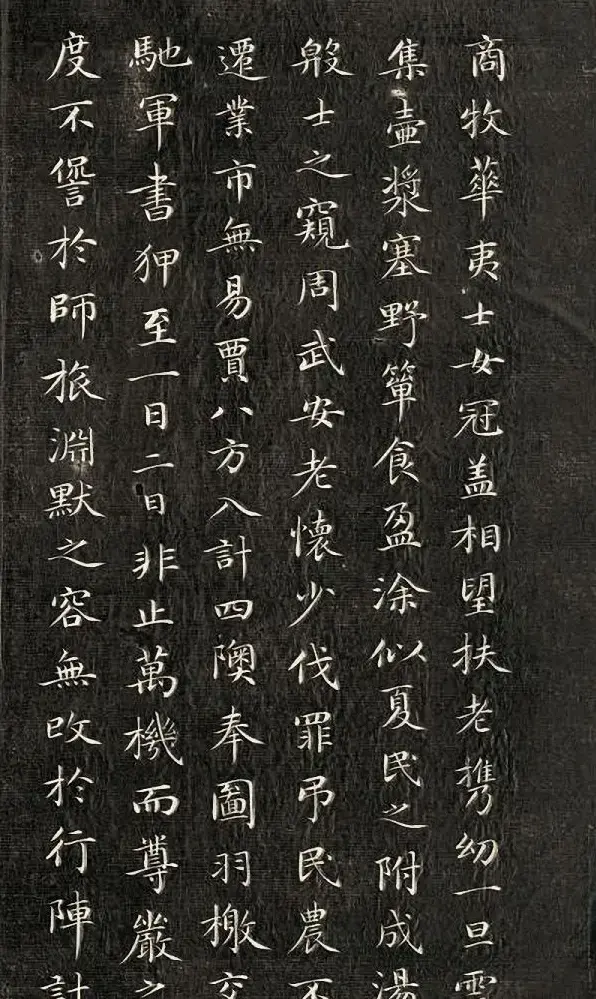 商牧華夷士女冠盖相望扶老攜幼一旦雲
集壷漿塞野簞食盈涂似夏民之附成湯
殷士之窺周武安老懷少伐罪吊民農不
遷業市無易賈八方入計四隩奉圖羽檄交
馳軍書狎至一日二日非止萬機而尊嚴之
度不諐於師旅淵默之容無改於行陣計